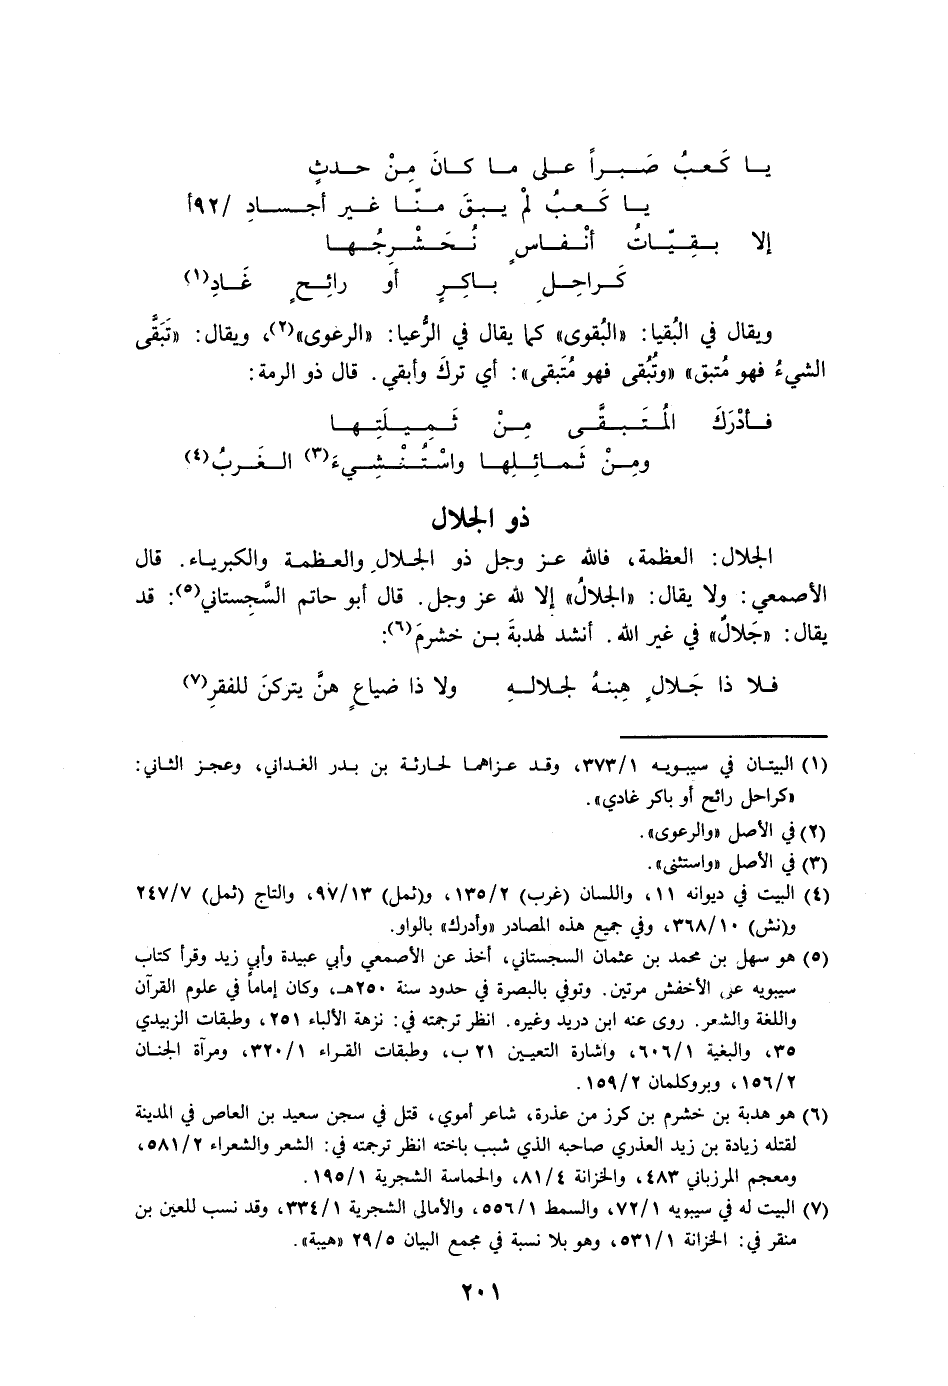 يا كَعبُ صَبراً على ما كانَ مِنْ حدثٍ
يا كَعبُ لمْ يبقَ منّا غير أجسادِ /٩٢أ
إلا بقيّاتُ أنْفاسٍ نُحَشْرِجُها
كَراحِلِ باكِرٍ أو رائِحٍ غَادِ(١)
ويقال في البُقيا: «البُقوى» كما يقال في الرُّعيا: «الرعوى»(٢)، ويقال: «تَبَقَّى
الشيءُ فهو مُتبق» «وتُبُقى فهو مُتَبقى»: أي تركَ وأبقي. قال ذو الرمة:
فأدْرَكَ المُتَبقَّى مِنْ ثَميلَتِها
ومِنْ ثَمائِلِها واسْتُنْشِيءَ(٣) الغَربُ(٤)
ذو الجلال
الجلال: العظمة، فالله عز وجل ذو الجلالِ والعظمة والكبرياء. قال
الأصمعي: ولا يقال: «الجلالُ» إلا لله عز وجل. قال أبو حاتم السَّجستاني(٥): قد
يقال: «جَلالٌ» في غير الله. أنشد لهدبةَ بن خشرمَ(٦):
فلا ذا جَلالٍ هِبنهُ لجلالهِ ولا ذا ضياعٍ هنَّ يتركنَ للفقرِ(٧)
(١) البيتان في سيبويه ٣٧٣/١، وقد عزاهما لحارثة بن بدر الغداني، وعجز الثاني:
«كراحل رائح أو باكر غادي».
(٢) في الأصل «والرعوى».
(٣) في الأصل «واستثنى».
(٤) البيت في ديوانه ١١، واللسان (غرب) ١٣٥/٢، و(ثمل) ٩٧/١٣، والتاج (ثمل) ٢٤٧/٧
و(نش) ٣٦٨/١٠، وفي جميع هذه المصادر «وأدرك» بالواو.
(٥) هو سهل بن محمد بن عثمان السجستاني، أخذ عن الأصمعي وأبي عبيدة وأبي زيد وقرأ كتاب
سيبويه على الأخفش مرتين. وتوفي بالبصرة في حدود سنة ٢٥٠هـ، وكان إماماً في علوم القرآن
واللغة والشعر. روى عنه ابن دريد وغيره. انظر ترجمته في: نزهة الألباء ٢٥١، وطبقات الزبيدي
٣٥، والبغية ٦٠٦/١، واشارة التعيين ٢١ ب، وطبقات القراء ٣٢٠/١، ومرآة الجنان
١٥٦/٢، وبروكلمان ١٥٩/٢.
(٦) هو هدبة بن خشرم بن كرز من عذرة، شاعر أموي، قتل في سجن سعيد بن العاص في المدينة
لقتله زيادة بن زيد العذري صاحبه الذي شبب باخته انظر ترجمته في: الشعر والشعراء ٥٨١/٢،
ومعجم المرزباني ٤٨٣، والخزانة ٨١/٤، والحماسة الشجرية ١٩٥/١.
(٧) البيت له في سيبويه ٧٢/١، والسمط ٥٥٦/١، والأمالى الشجرية ٣٣٤/١، وقد نسب للعين بن
منقر في: الخزانة ٥٣١/١، وهو بلا نسبة في مجمع البيان ٢٩/٥ «هيبة».
٢٠١